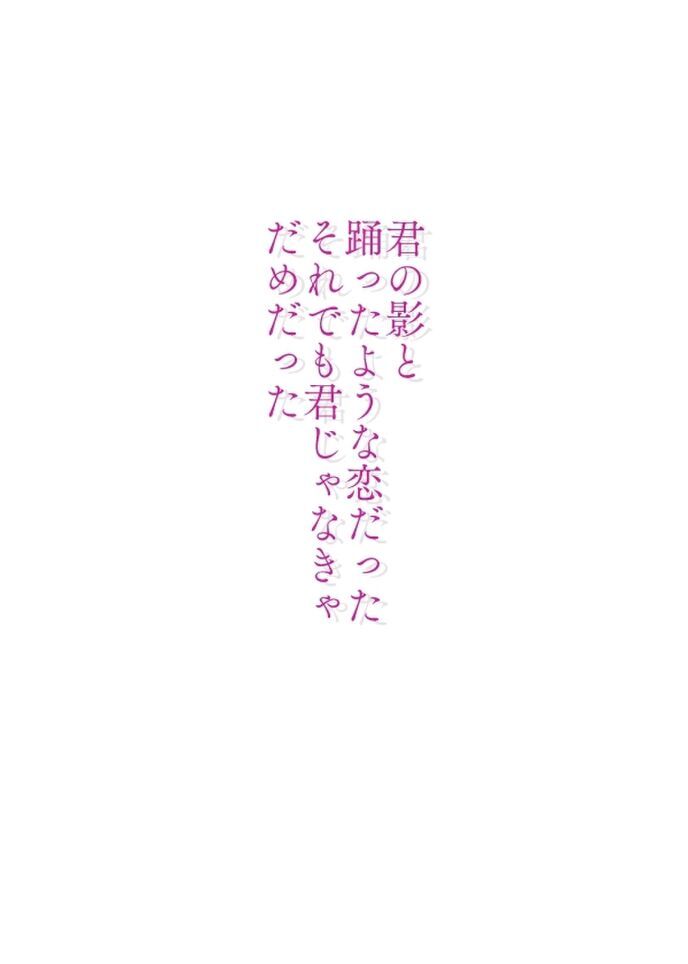 君の影と
踊ったような恋だった
それでも君じゃなきゃ
だめだった